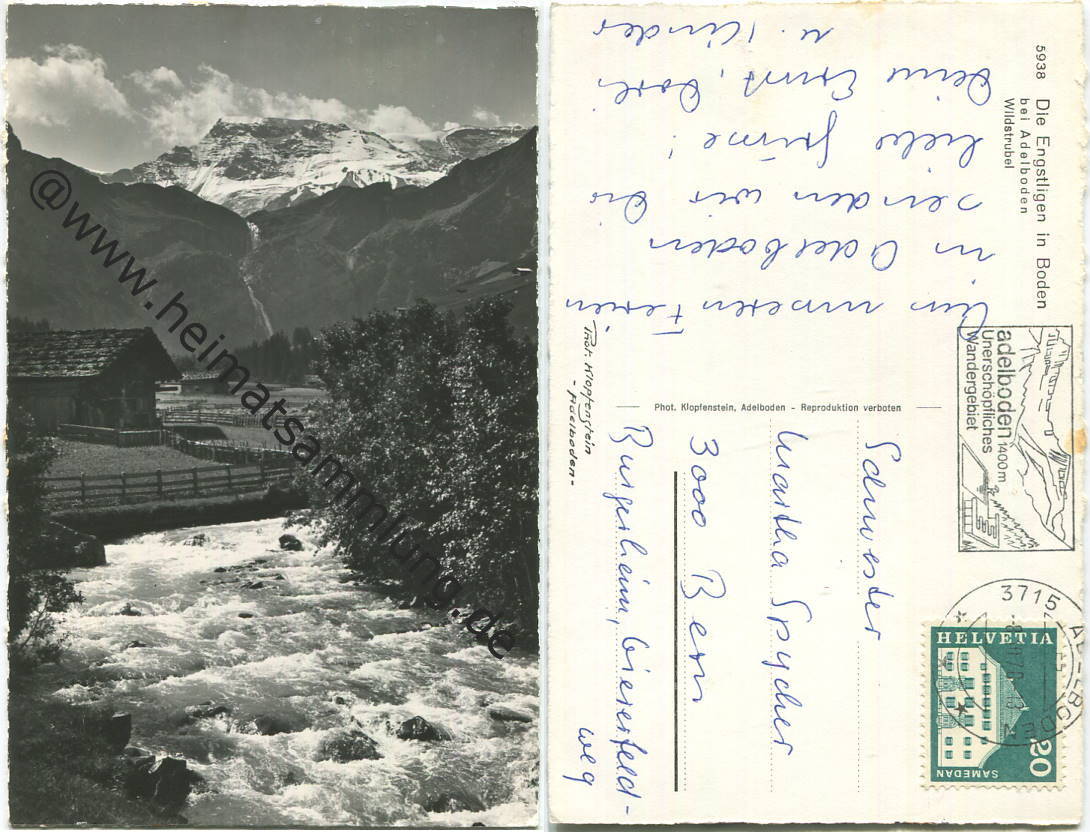 @www.heimatsammlung.de
5938 Die Engstligen in Boden
bei Adelboden
Wildstrubel
Aus unseren Ferien
in Adelboden
senden wir Dir
liebe Grüsse!
Deine Ernst, Dorli
u. Kinder
Phot. Klopfenstein
- Adelboden -
Phot. Klopfenstein, Adelboden - Reproduktion verboten
adelboden 1400 m
Unerschöpfliches
Wandergebiet
3715
HELVETIA
SAMEDAN
20
Schwester
Martha Spycher
3000 Bern
Burgerheim, Viererfeld-
weg